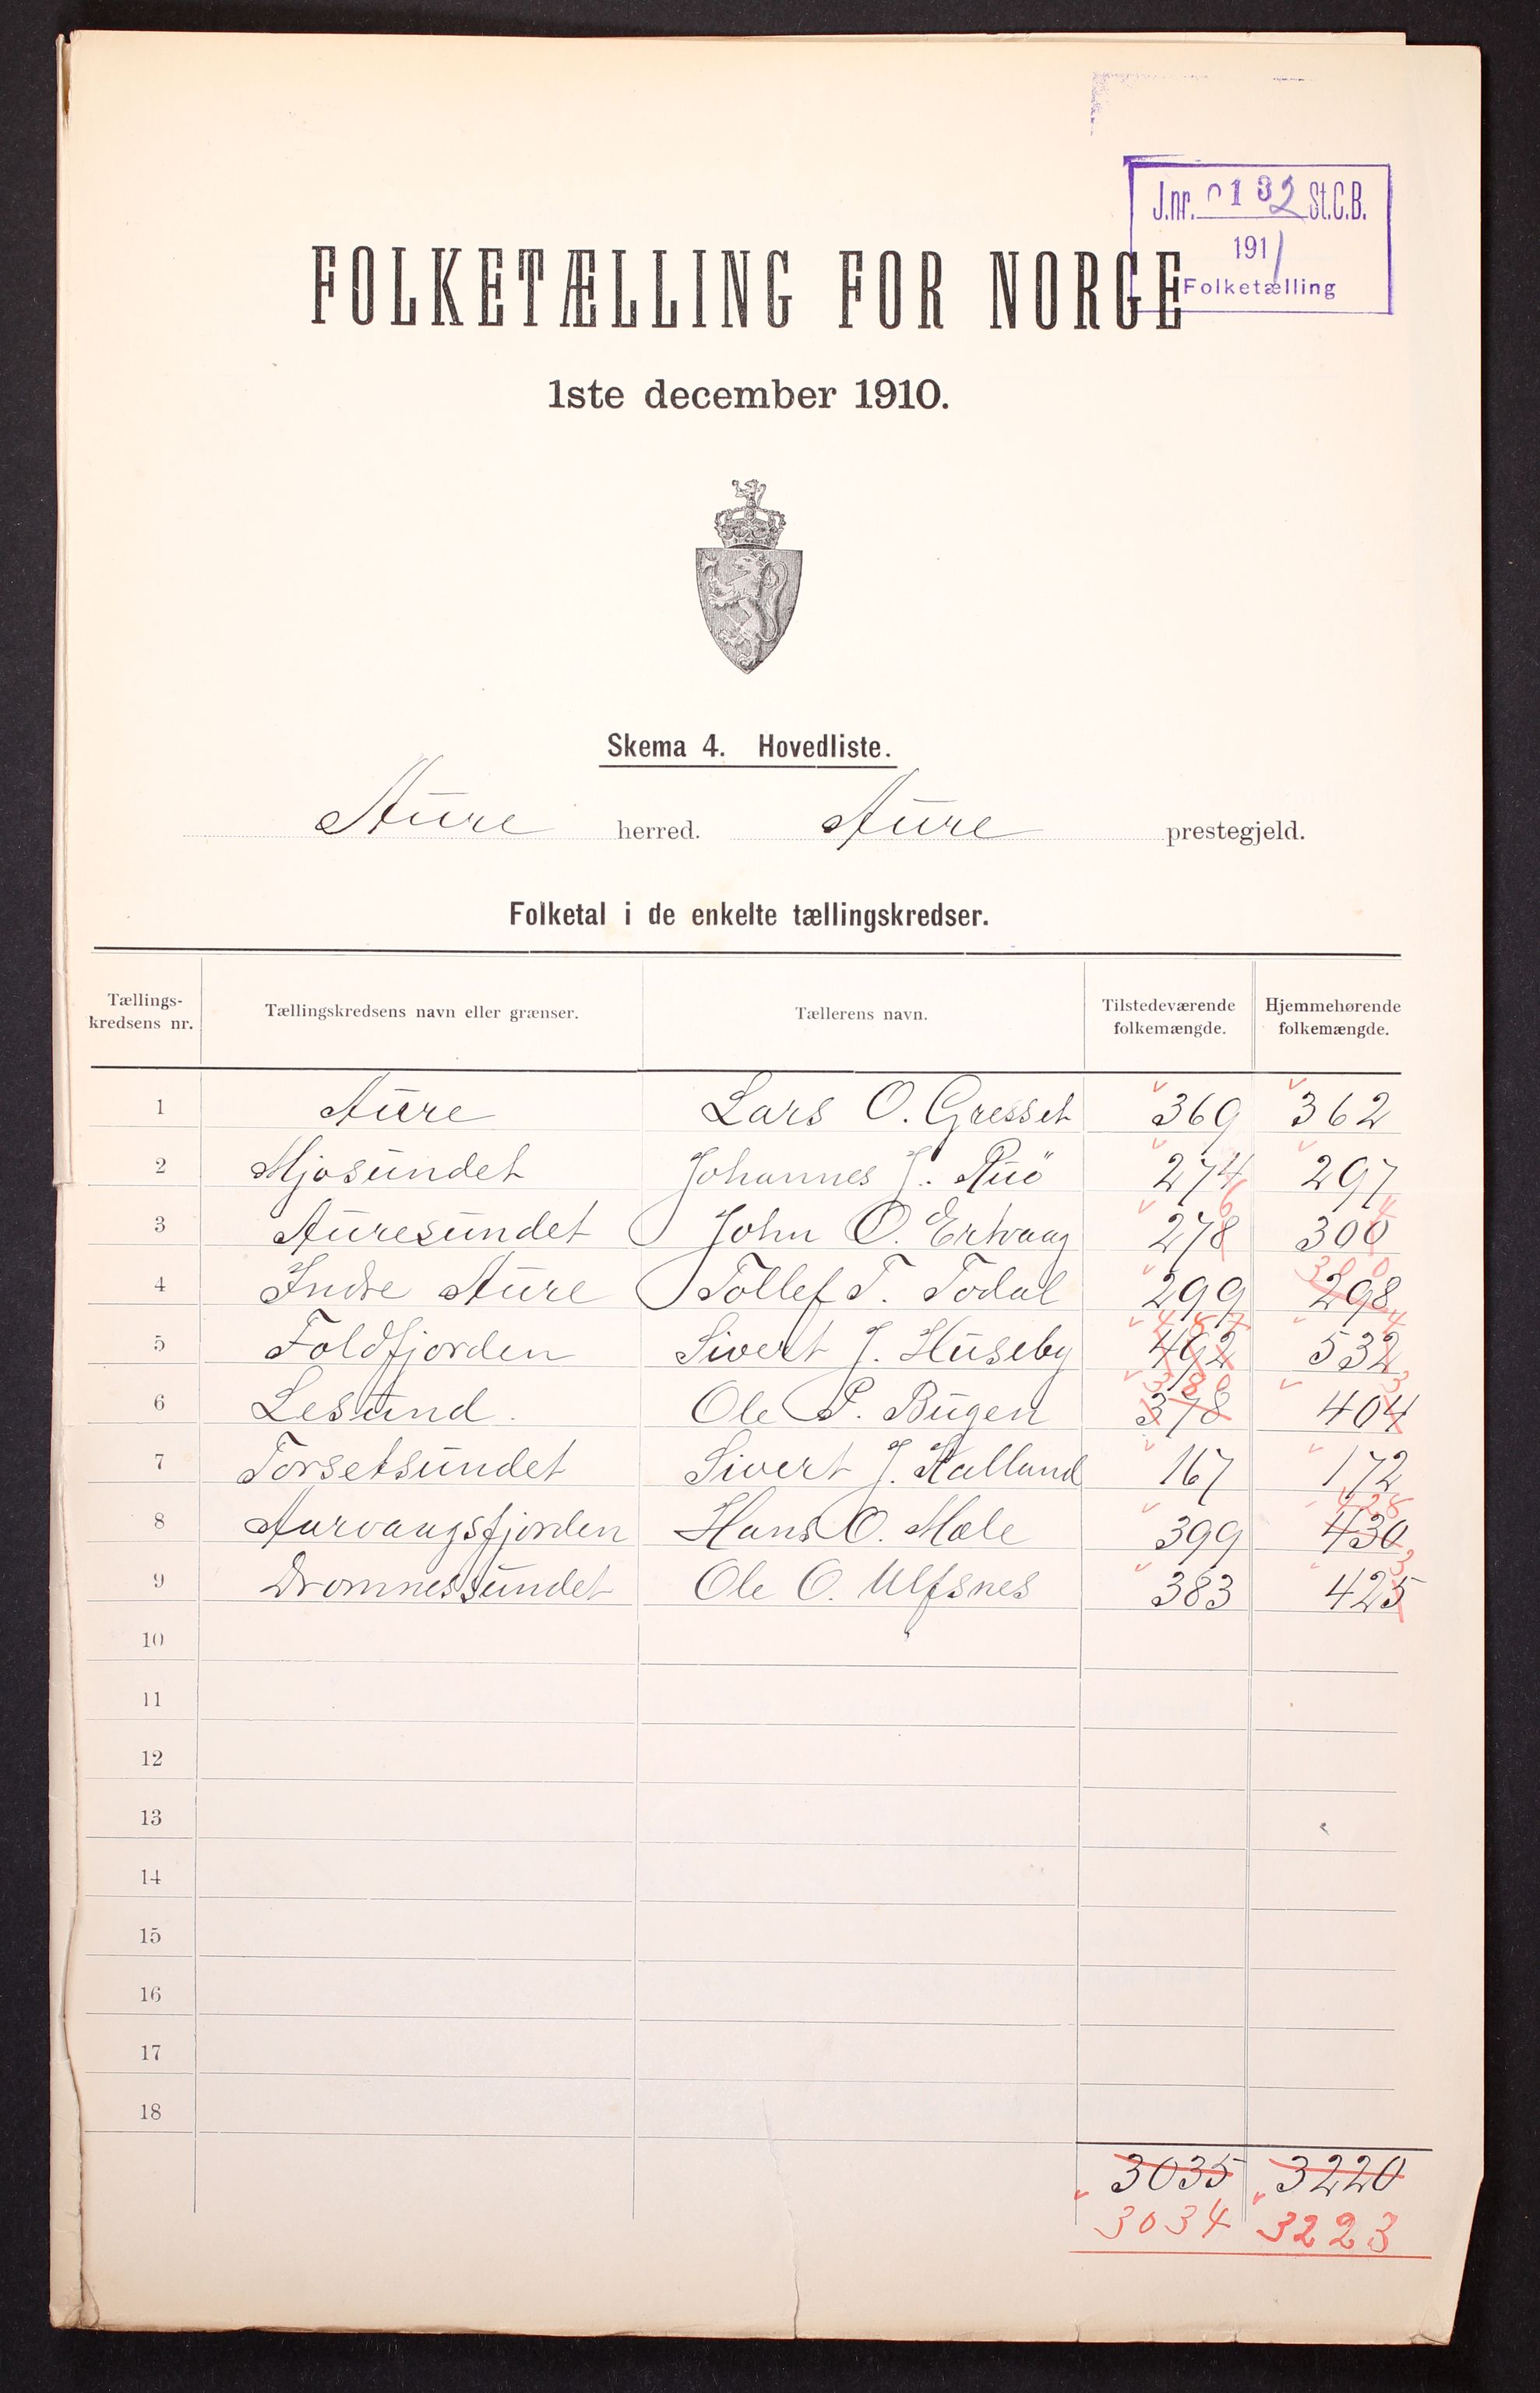 J.nr. 0132 St.C.B.
1911
Folketælling
FOLKETÆLLING FOR NORGE
1ste december 1910.
Skema 4. Hovedliste.
Aure herred. Aure prestegjeld.
Folketal i de enkelte tællingskredser.
Tællings-kredsens nr. Tællingskredsens navn eller grænser. Tællerens navn. Tilstedeværende folkemængde. Hjemmehørende folkemængde.
1 Aure Lars O. Gresset 369 362
2 Mjosundet Johannes J. 274 297
3 Auresundet John O. Ertvaag 278 6 300 4
4 Indre Aure Tollef T. Todal 299 298 300
5 Foldfjorden Sivert J. Huseby 492 487 532 4
6 Lesund. Ole P. Bugen 378 380 404 3
7 Torsetsundet Sivert J. Halland 167 172
8 Aarvaagsfjorden Hans O. Mole 399 430 428
9 Dromnessundet Ole O. Ulfsnes 383 425 3
10
11
12
13
14
15
16
17
18
3035 3220
3034 3223